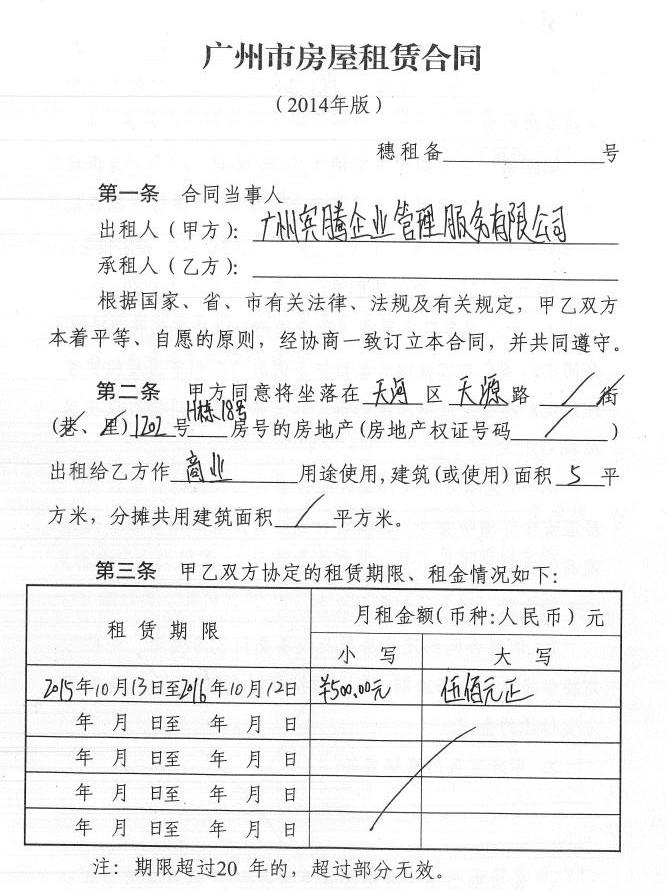 广州市房屋租赁合同
（2014年版）
穗租备____________号
第一条 合同当事人
出租人（甲方）：广州宾腾企业管理服务有限公司
承租人（乙方）：____________
根据国家、省、市有关法律、法规及有关规定，甲乙双方
本着平等、自愿的原则，经协商一致订立本合同，并共同遵守。
第二条 甲方同意将坐落在 天河 区 天源 路 / 街
（巷、里）1202号 H栋18号 房号的房地产（房地产权证号码 / ）
出租给乙方作 商业 用途使用，建筑（或使用）面积 5 平
方米，分摊共用建筑面积 / 平方米。
第三条 甲乙双方协定的租赁期限、租金情况如下：
租赁期限 月租金额（币种：人民币）元
小写 大写
2015年10月13日至2016年10月12日 ¥500.00元 伍佰元正
年 月 日至 年 月 日
年 月 日至 年 月 日
年 月 日至 年 月 日
年 月 日至 年 月 日
注：期限超过20 年的，超过部分无效。